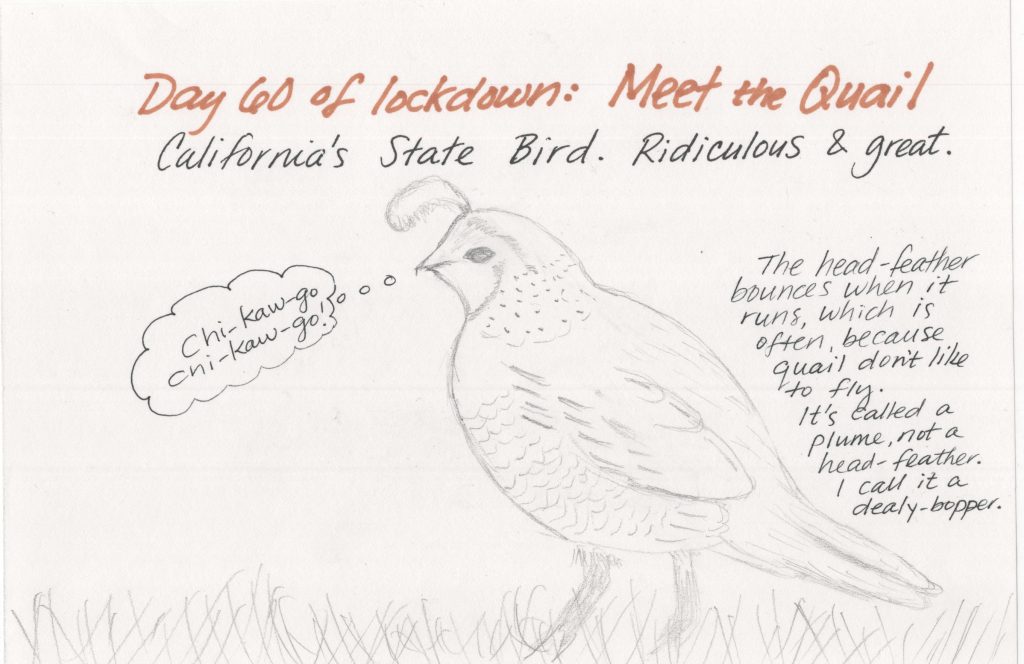 Day 60 of lockdown: Meet the Quail
California's State Bird. Ridiculous & great.
Chi-kaw-go
chi-kaw-go!
The head-feather
bounces when it
runs, which is
often, because
quail don't like
to fly.
It's called a
plume, not a
head-feather.
I call it a
dealy-bopper.